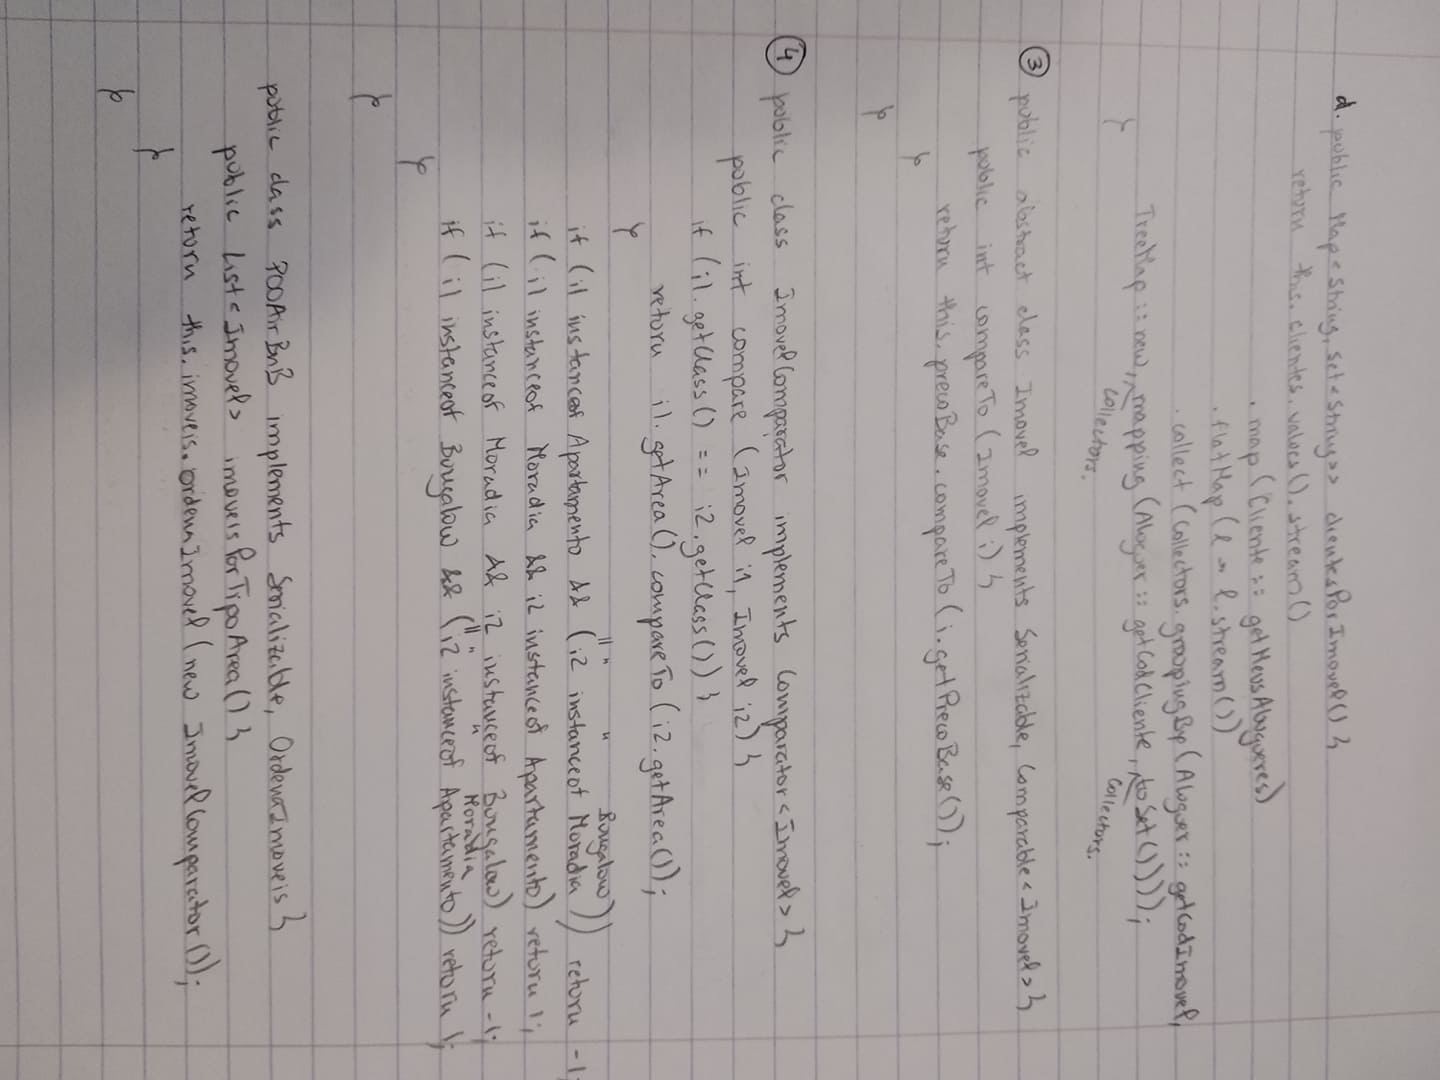 d. public Map<String, Set<String>> clientesPorImovel() {
return this.clientes.values().stream()
.map(Cliente::getMeusAlugueres)
.flatMap(l -> l.stream())
.collect(Collectors.groupingBy(Aluguer::getCodImovel,
TreeMap::new, mapping(Aluguer::getCodCliente, toSet())));
Collectors. Collectors.
}
3 public abstract class Imovel implements Serializable, Comparable<Imovel> {
public int compareTo(Imovel i) {
return this.precoBase.compareTo(i.getPrecoBase());
}
}
4 public class ImovelComparator implements Comparator<Imovel> {
public int compare (Imovel i1, Imovel i2) {
if (i1.getClass() == i2.getClass()) {
return i1.getArea().compareTo(i2.getArea());
}
|| " " Bungalow))
if (i1 instanceof Apartamento && (i2 instanceof Moradia return -1;
if (i1 instanceof Moradia && i2 instanceof Apartamento) return 1;
if (i1 instanceof Moradia && i2 instanceof Bungalow) return -1;
|| " " Moradia
if (i1 instanceof Bungalow && (i2 instanceof Apartamento)) return 1;
}
}
public class POOAirBnB implements Serializable, OrdenaImoveis {
public List<Imovel> imoveisPorTipoArea() {
return this.imoveis.ordenaImovel(new ImovelComparator());
}
}